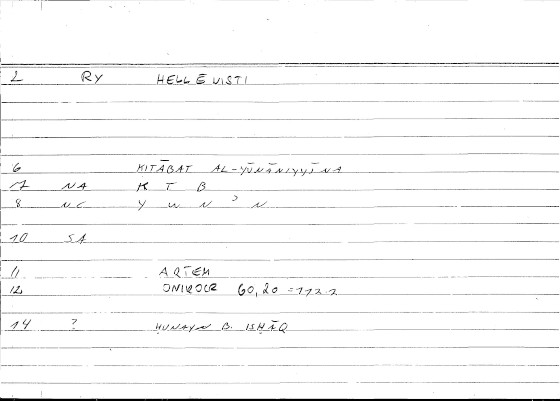 2 RY HELLĒNISTI
6 KITĀBAT AL-YŪNĀNIYYĪNA
7 NA K T B
8 NC Y W N ʾ N
10 SA
11 ARTEM
12 ONIROCR 60,20 =
14 ? ḤUNAYN B. ISḤĀQ